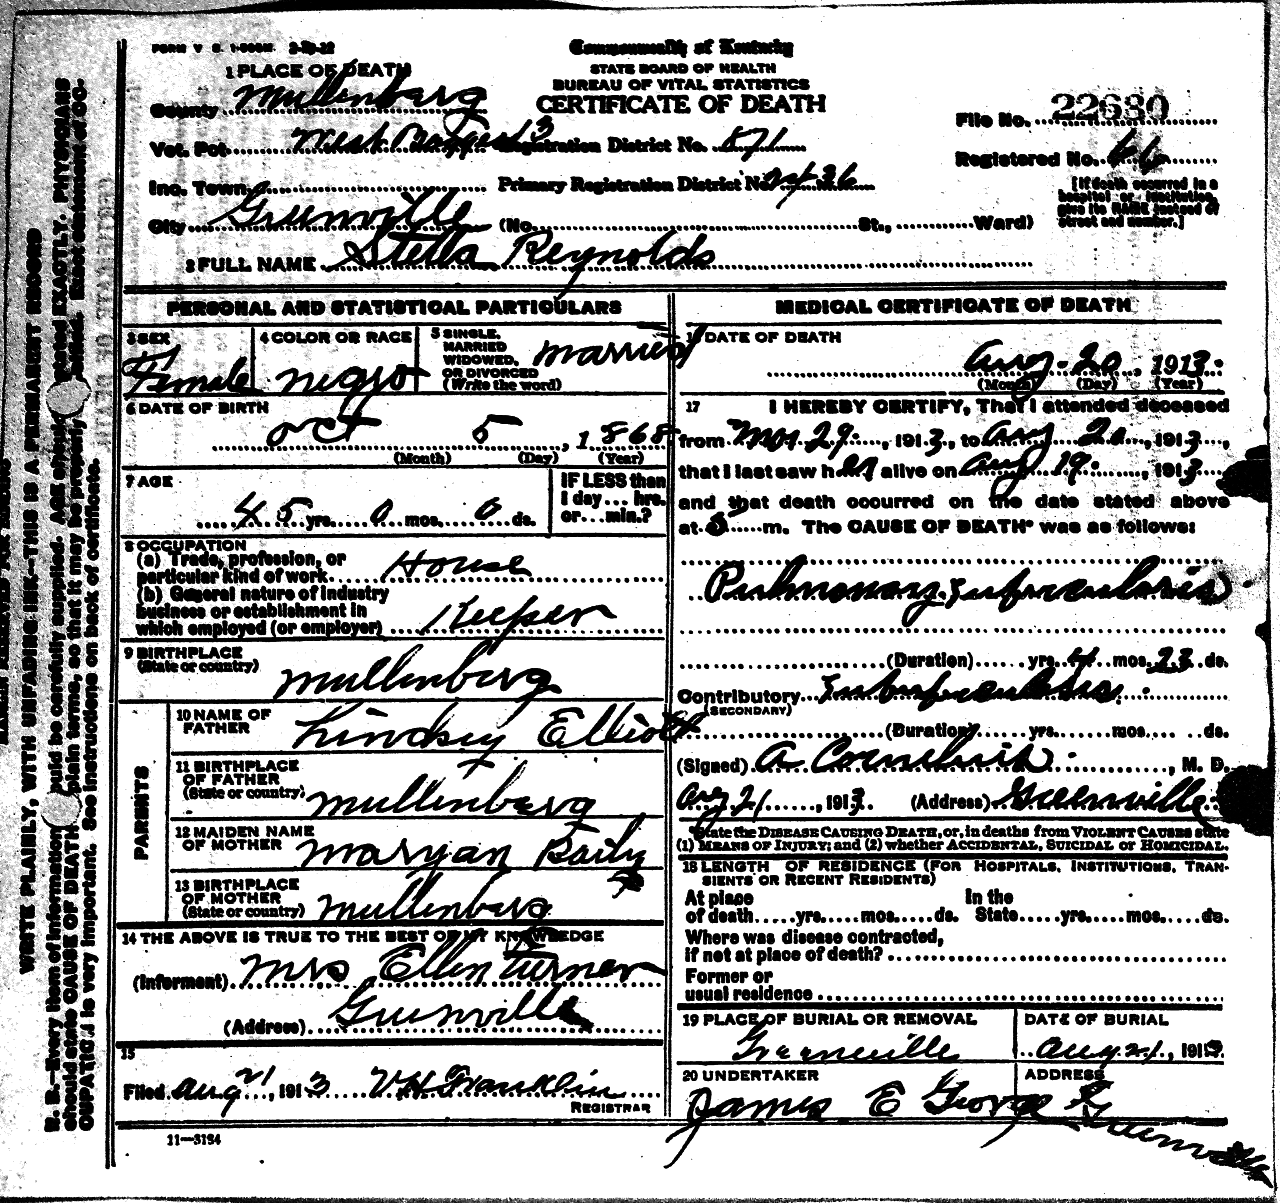 FORM V. S. 1-
Commonwealth of Kentucky
STATE BOARD OF HEALTH
BUREAU OF VITAL STATISTICS
CERTIFICATE OF DEATH
1 PLACE OF DEATH
County Mullenberg
Vot. Pct. West 3 Registration District No. 871
Inc. Town Primary Registration District No.
City Greenville (No. St., Ward)
File No. 22680
Registered No. 66
[If death occurred in a
hospital or institution,
give its NAME instead of
street and number.]
2 FULL NAME Stella Reynolds
PERSONAL AND STATISTICAL PARTICULARS
3 SEX
Female
4 COLOR OR RACE
negro
5 SINGLE,
MARRIED
WIDOWED,
OR DIVORCED
(Write the word)
married
6 DATE OF BIRTH
Oct 5, 1868
(Month) (Day) (Year)
7 AGE
45 yrs. 0 mos. 0 ds.
IF LESS than
1 day... hrs.
or...min.?
8 OCCUPATION
(a) Trade, profession, or
particular kind of work House
(b) General nature of industry
business or establishment in
which employed (or employer) Keeper
9 BIRTHPLACE
(State or country)
Mullenberg
PARENTS
10 NAME OF
FATHER
Lindsey Elliott
11 BIRTHPLACE
OF FATHER
(State or country)
Mullenberg
12 MAIDEN NAME
OF MOTHER
Maryan Baily
13 BIRTHPLACE
OF MOTHER
(State or country)
Mullenberg
14 THE ABOVE IS TRUE TO THE BEST OF MY KNOWLEDGE
(Informent) Mrs Ellen Turner
(Address) Greenville
15
Filed Aug 21, 1913 V H Franklin
REGISTRAR
11—3184
MEDICAL CERTIFICATE OF DEATH
16 DATE OF DEATH
Aug. 20, 1913.
(Month) (Day) (Year)
17 I HEREBY CERTIFY, That I attended deceased
from Mar 29, 1913, to Aug 20, 1913,
that I last saw her alive on Aug 19, 1913
and that death occurred on the date stated above
at m. The CAUSE OF DEATH* was as follows:
Pulmonary Tuberculosis
(Duration) yrs. 4 mos. 23 ds.
Contributory Tuberculosis.
(SECONDARY)
(Duration) yrs. mos. ds.
(Signed) A Cornelius, M. D.
Aug 21, 1913. (Address) Greenville
*State the DISEASE CAUSING DEATH, or, in deaths from VIOLENT CAUSES state
(1) MEANS OF INJURY; and (2) whether ACCIDENTAL, SUICIDAL or HOMICIDAL.
18 LENGTH OF RESIDENCE (FOR HOSPITALS, INSTITUTIONS, TRAN-
SIENTS OR RECENT RESIDENTS)
At place In the
of death yrs. mos. ds. State yrs. mos. ds.
Where was disease contracted,
if not at place of death?
Former or
usual residence
19 PLACE OF BURIAL OR REMOVAL
Greenville
DATE OF BURIAL
Aug 21, 1913.
20 UNDERTAKER
James E George
ADDRESS
Greenville
WRITE PLAINLY, WITH UNFADING INK—THIS IS A PERMANENT RECORD
N. B.—Every item of information should be carefully supplied. AGE should be stated EXACTLY. PHYSICIANS
should state CAUSE OF DEATH in plain terms, so that it may be properly classified. Exact statement of OC-
CUPATION is very important. See instructions on back of certificate.